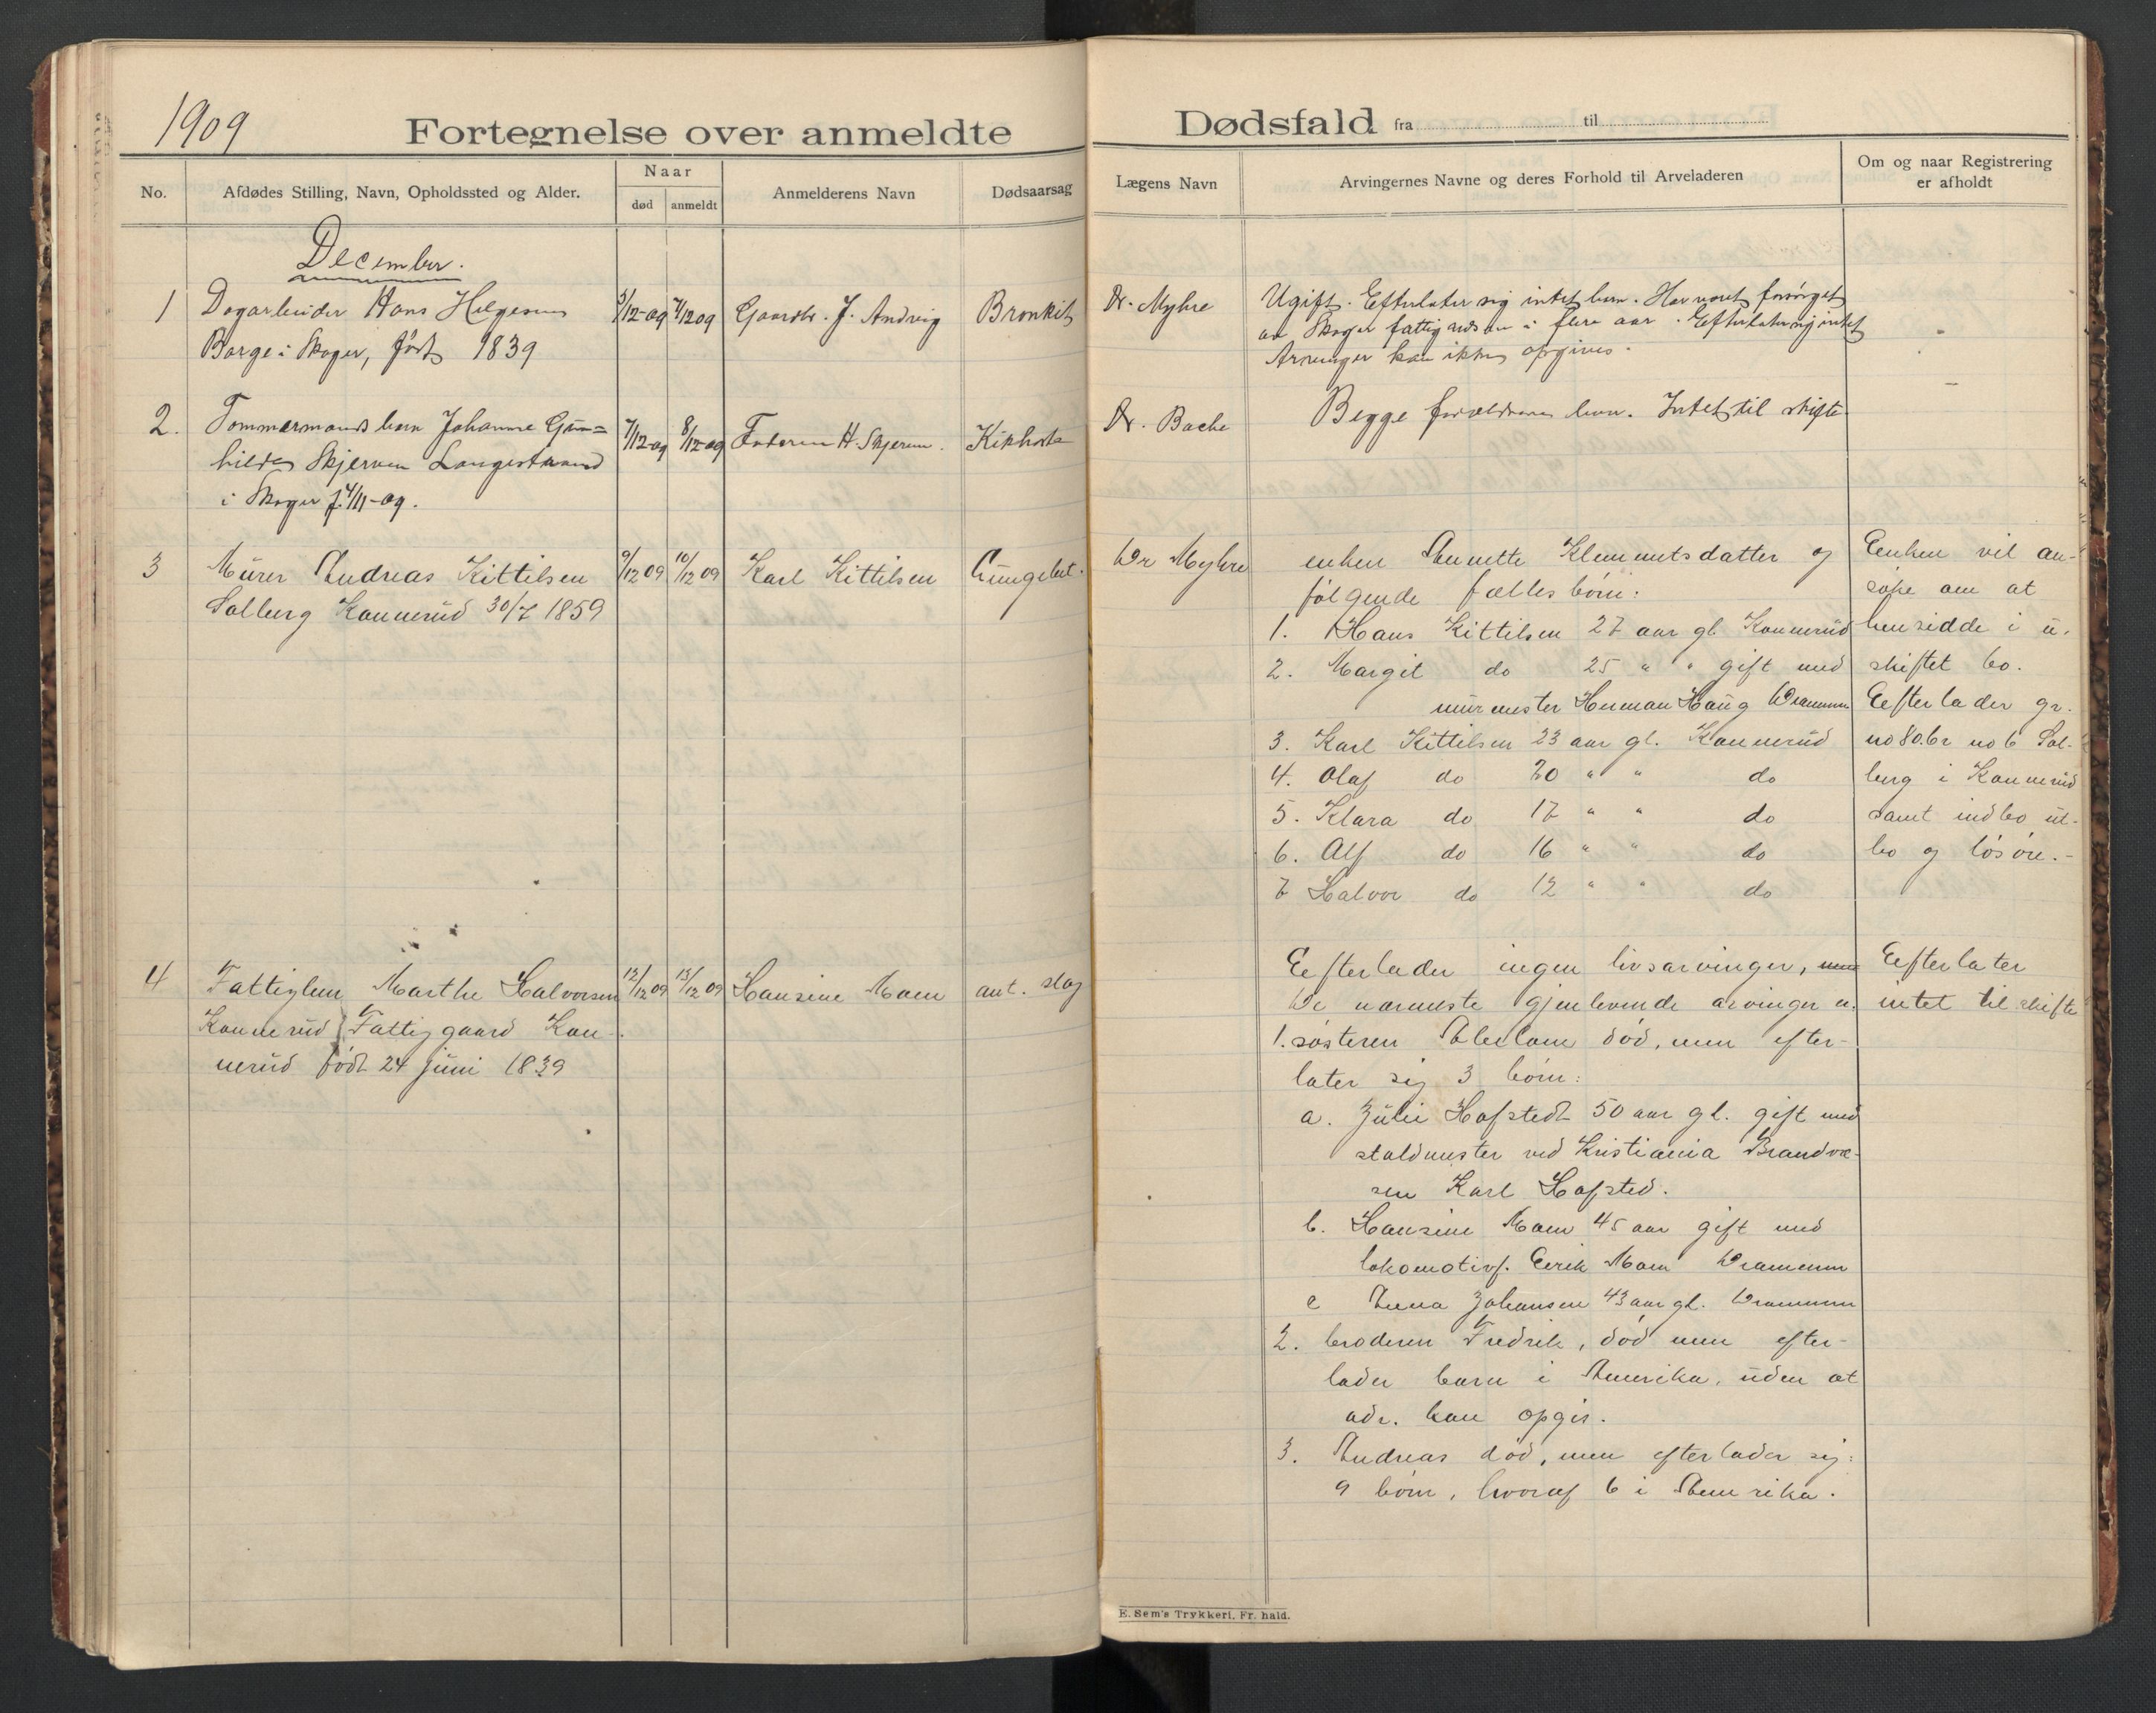 1909
Fortegnelse over anmeldte
No.
Afdødes Stilling, Navn, Opholdssted og Alder.
Naar
død
anmeldt
Anmelderens Navn
Dødsaarsag
December.
1
Dagarbeider Hans Helgesen
Borge i Skoger, født 1839
3/12-09
4/12 09
Gaardbr. J. Andvig
Bronkit
2.
Tømmermands barn Johanne Gun=
hilde Skjerven Langestrand
i Skoger f. 4/11-09.
7/12-09
8/12-09
Faderen H. Skjerven.
Kikhoste
3
Murer Andreas Kittilsen
Solberg Konnerud 30/7 1859
9/12 09
10/12 09
Karl Kittilsen
Lungebet.
4
Fattiglem Marthe Halvorsen
Konnerud Fattiggaard Kon-
nerud født 24 juni 1839
12/12 09
13/12 09
Hansine Moen
ant. slag
Dødsfald fra til
Lægens Navn
Arvingernes Navne og deres Forhold til Arveladeren
Om og naar Registrering
er afholdt
Dr. Myhre
Ugift. Efterlater sig intet barn. Har været forsørget
av Skoger fattigvæsen i flere aar. Efterlater sig intet
Arvinger kan ikke opgives.
Dr. Bache
Begge forældrene lever. Intet til skifte
Dr Myhre
enken Annette Klemmetsdatter og
følgende fællesbørn:
1. Hans Kittilsen 27 aar gl. Konnerud
2. Margit do 25 " " gift med
murmester Herman Haug Drammen
3. Karl Kittilsen 23 aar gl. Konnerud
4. Olaf do 20 " " do
5. Klara do 17 " " do
6. Alf do 16 " " do
7 Halvor do 12 " " do
Enken vil an-
søke om at
hensidde i u-
skiftet bo.
Eefterlader gr.
no 80. br no 6 Sol-
berg i Konnerud
samt indbo ut-
bo og løsøre.-
Eefterlader ingen livsarvinger, men
De nærmeste gjenlevende arvinger er
1. søsteren død, men efter-
later sig 3 børn:
a. Julie Hofstedt 50 aar gl. gift med
staldmester ved Kristiania Brandvæ-
sen Karl Hofsted.
b. Hansine Moen 45 aar gift med
lokomotivf. Eerik Moen Drammen
c Anna Johansen 43 aar gl. Drammen
2. broderen Fredrik, død men efter-
lader barn i Amerika, uden at
adr. kan opgis.
3. Andreas død, men efterlader sig:
9 børn, hvoraf 6 i Amerika.
Eefterlater
intet til skifte
E. Sem's Trykkeri, Fr. hald.